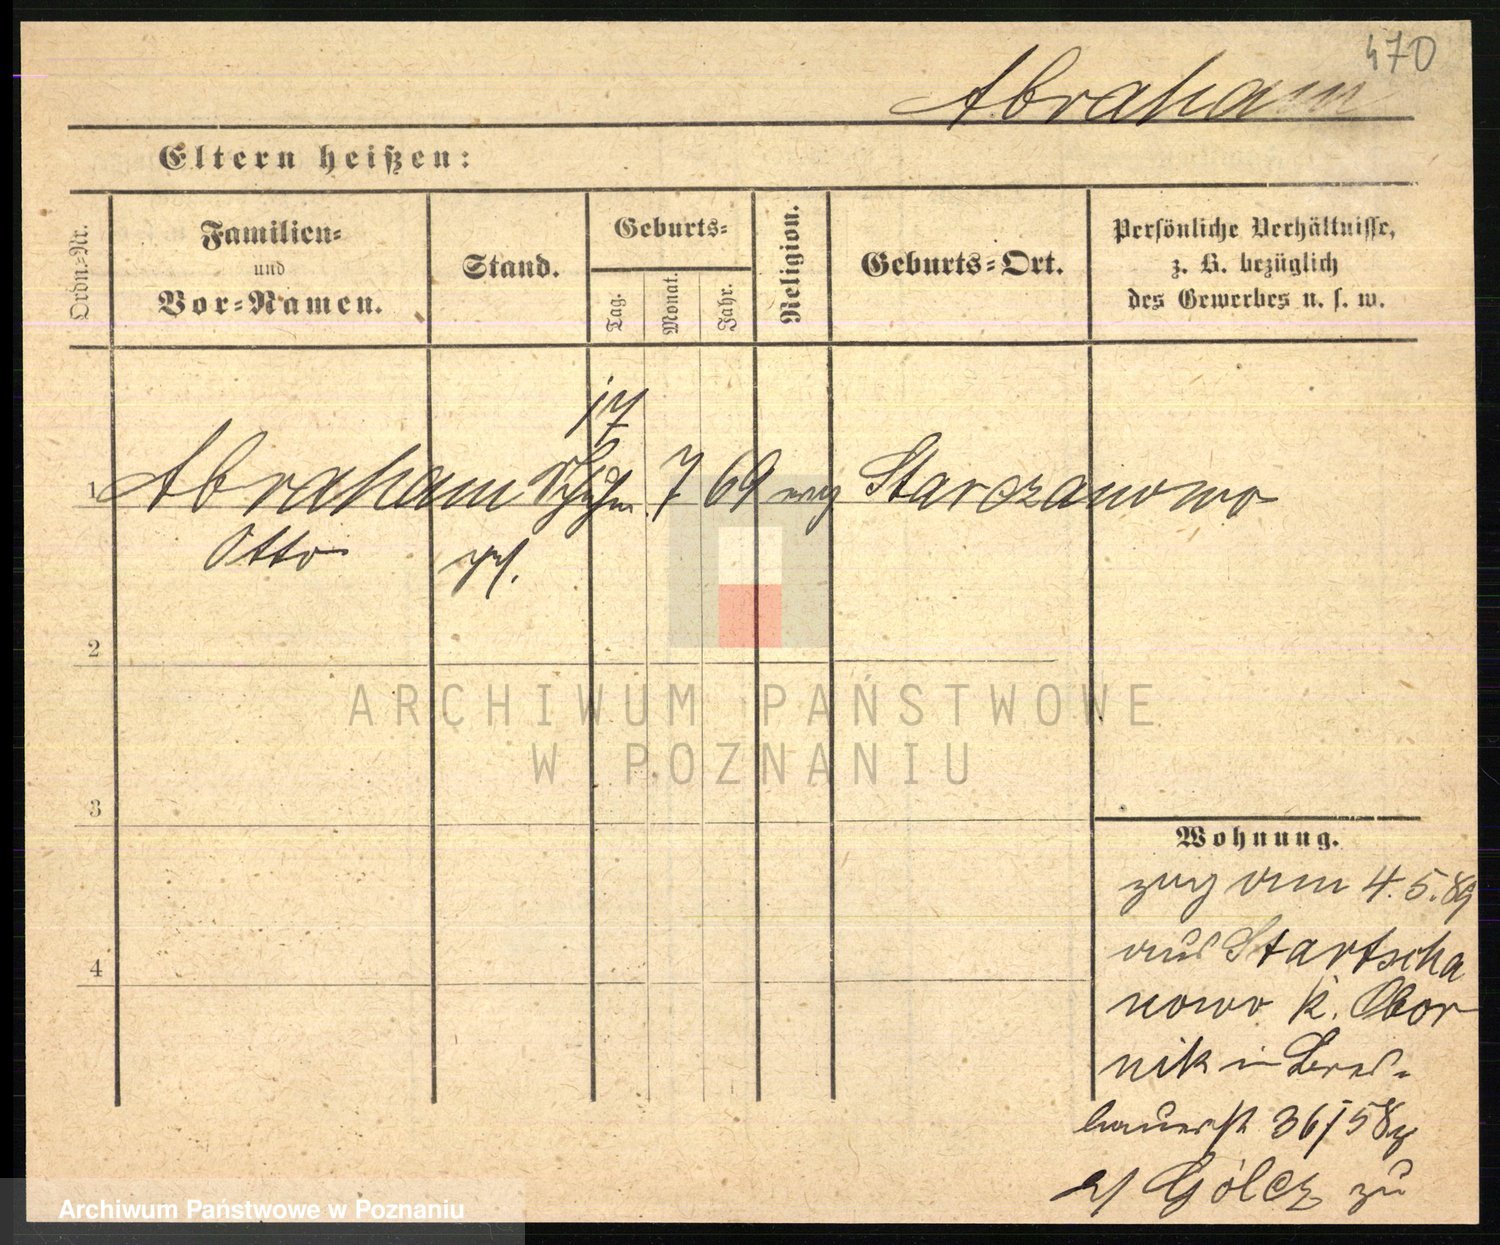 470
Abraham
Eltern heißen:
Ordn.-Nr.
Familien-
und
Vor-Namen.
Stand.
Geburts-
Tag.
Monat.
Jahr.
Religion.
Geburts-Ort.
Persönliche Verhältnisse,
z. B. bezüglich
des Gewerbes u. s. w.
17
1 Abraham 7 69 evg Starczanowo
Otto
2
3
4
Wohnung.
zug am 4.5.89
aus Startscha
nowo K. Obor
nik in
36/5 89
Gólcz zu
ARCHIWUM PAŃSTWOWE
W POZNANIU
Archiwum Państwowe w Poznaniu